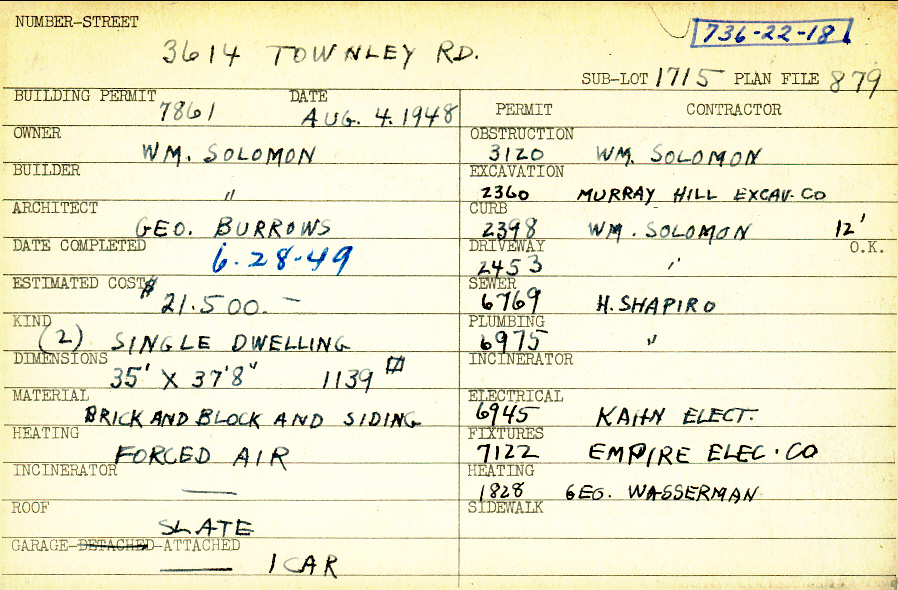 NUMBER-STREET
736-22-18
3614 TOWNLEY RD.
SUB-LOT 1715 PLAN FILE 879
BUILDING PERMIT DATE
7861 AUG. 4. 1948
OWNER
WM. SOLOMON
BUILDER
"
ARCHITECT
GEO. BURROWS
DATE COMPLETED
6-28-49
ESTIMATED COST
$21.500.—
KIND
(2) SINGLE DWELLING
DIMENSIONS
35' X 37'8" 1139
MATERIAL
BRICK AND BLOCK AND SIDING
HEATING
FORCED AIR
INCINERATOR
—
ROOF
SLATE
GARAGE-DETACHED-ATTACHED
1 CAR
PERMIT CONTRACTOR
OBSTRUCTION
3120 WM. SOLOMON
EXCAVATION
2360 MURRAY HILL EXCAV. CO
CURB
2398 WM. SOLOMON 12'
DRIVEWAY O.K.
2453 "
SEWER
6769 H. SHAPIRO
PLUMBING
6975 "
INCINERATOR
ELECTRICAL
6945 KAHN ELECT.
FIXTURES
7122 EMPIRE ELEC. CO
HEATING
1828 GEO. WASSERMAN
SIDEWALK